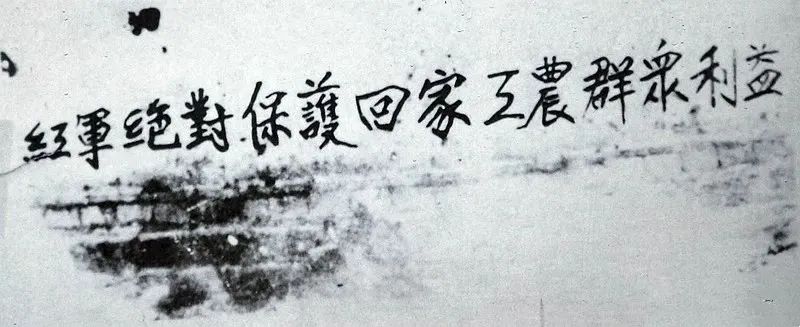 紅軍絕對保護回家工農群眾利益